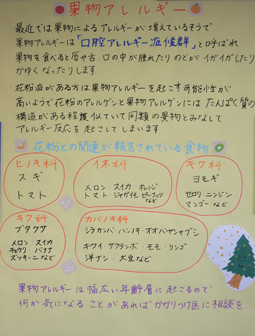 果物アレルギー
最近では果物によるアレルギーが増えているそうで
果物アレルギーは「口腔アレルギー症候群」と呼ばれ
果物を食べると唇や舌、口の中が腫れたりのどがイガイガしたり
かゆくなったりします
花粉症がある方は果物アレルギーを起こす可能性が
高いようで花粉のアレルゲンと果物アレルゲンには たんぱく質の
構造がある程度似ていて同類の果物とみなして
アレルギー反応を起こしてしまいます
花粉との関連が報告されている食物
ヒノキ科
スギ
トマト
イネ科
メロン スイカ オレンジ
トマト ジャガイモ ピーナッツ
など
キク科
ヨモギ
セロリ ニンジン
マンゴー など
キク科
ブタクサ
メロン スイカ
キュウリ バナナ
ズッキーニ など
カバノキ科
シラカバ ハンノキ オオバヤシャブシ
キウイ サクランボ モモ リンゴ
洋ナシ 大豆など
果物アレルギーは幅広い年齢層に起こるので
何か気になることがあればかかりつけ医に相談を